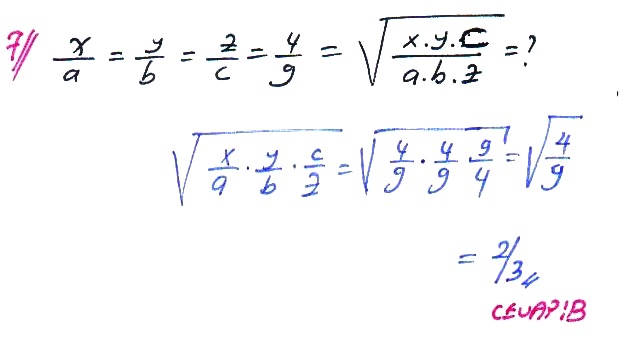 7// x/a = y/b = z/c = 4/9 = √(x.y.c / a.b.z) = ?
√(x/a · y/b · c/z) = √(4/9 · 4/9 9/4) = √(4/9)
= 2/3
CEVAP:B